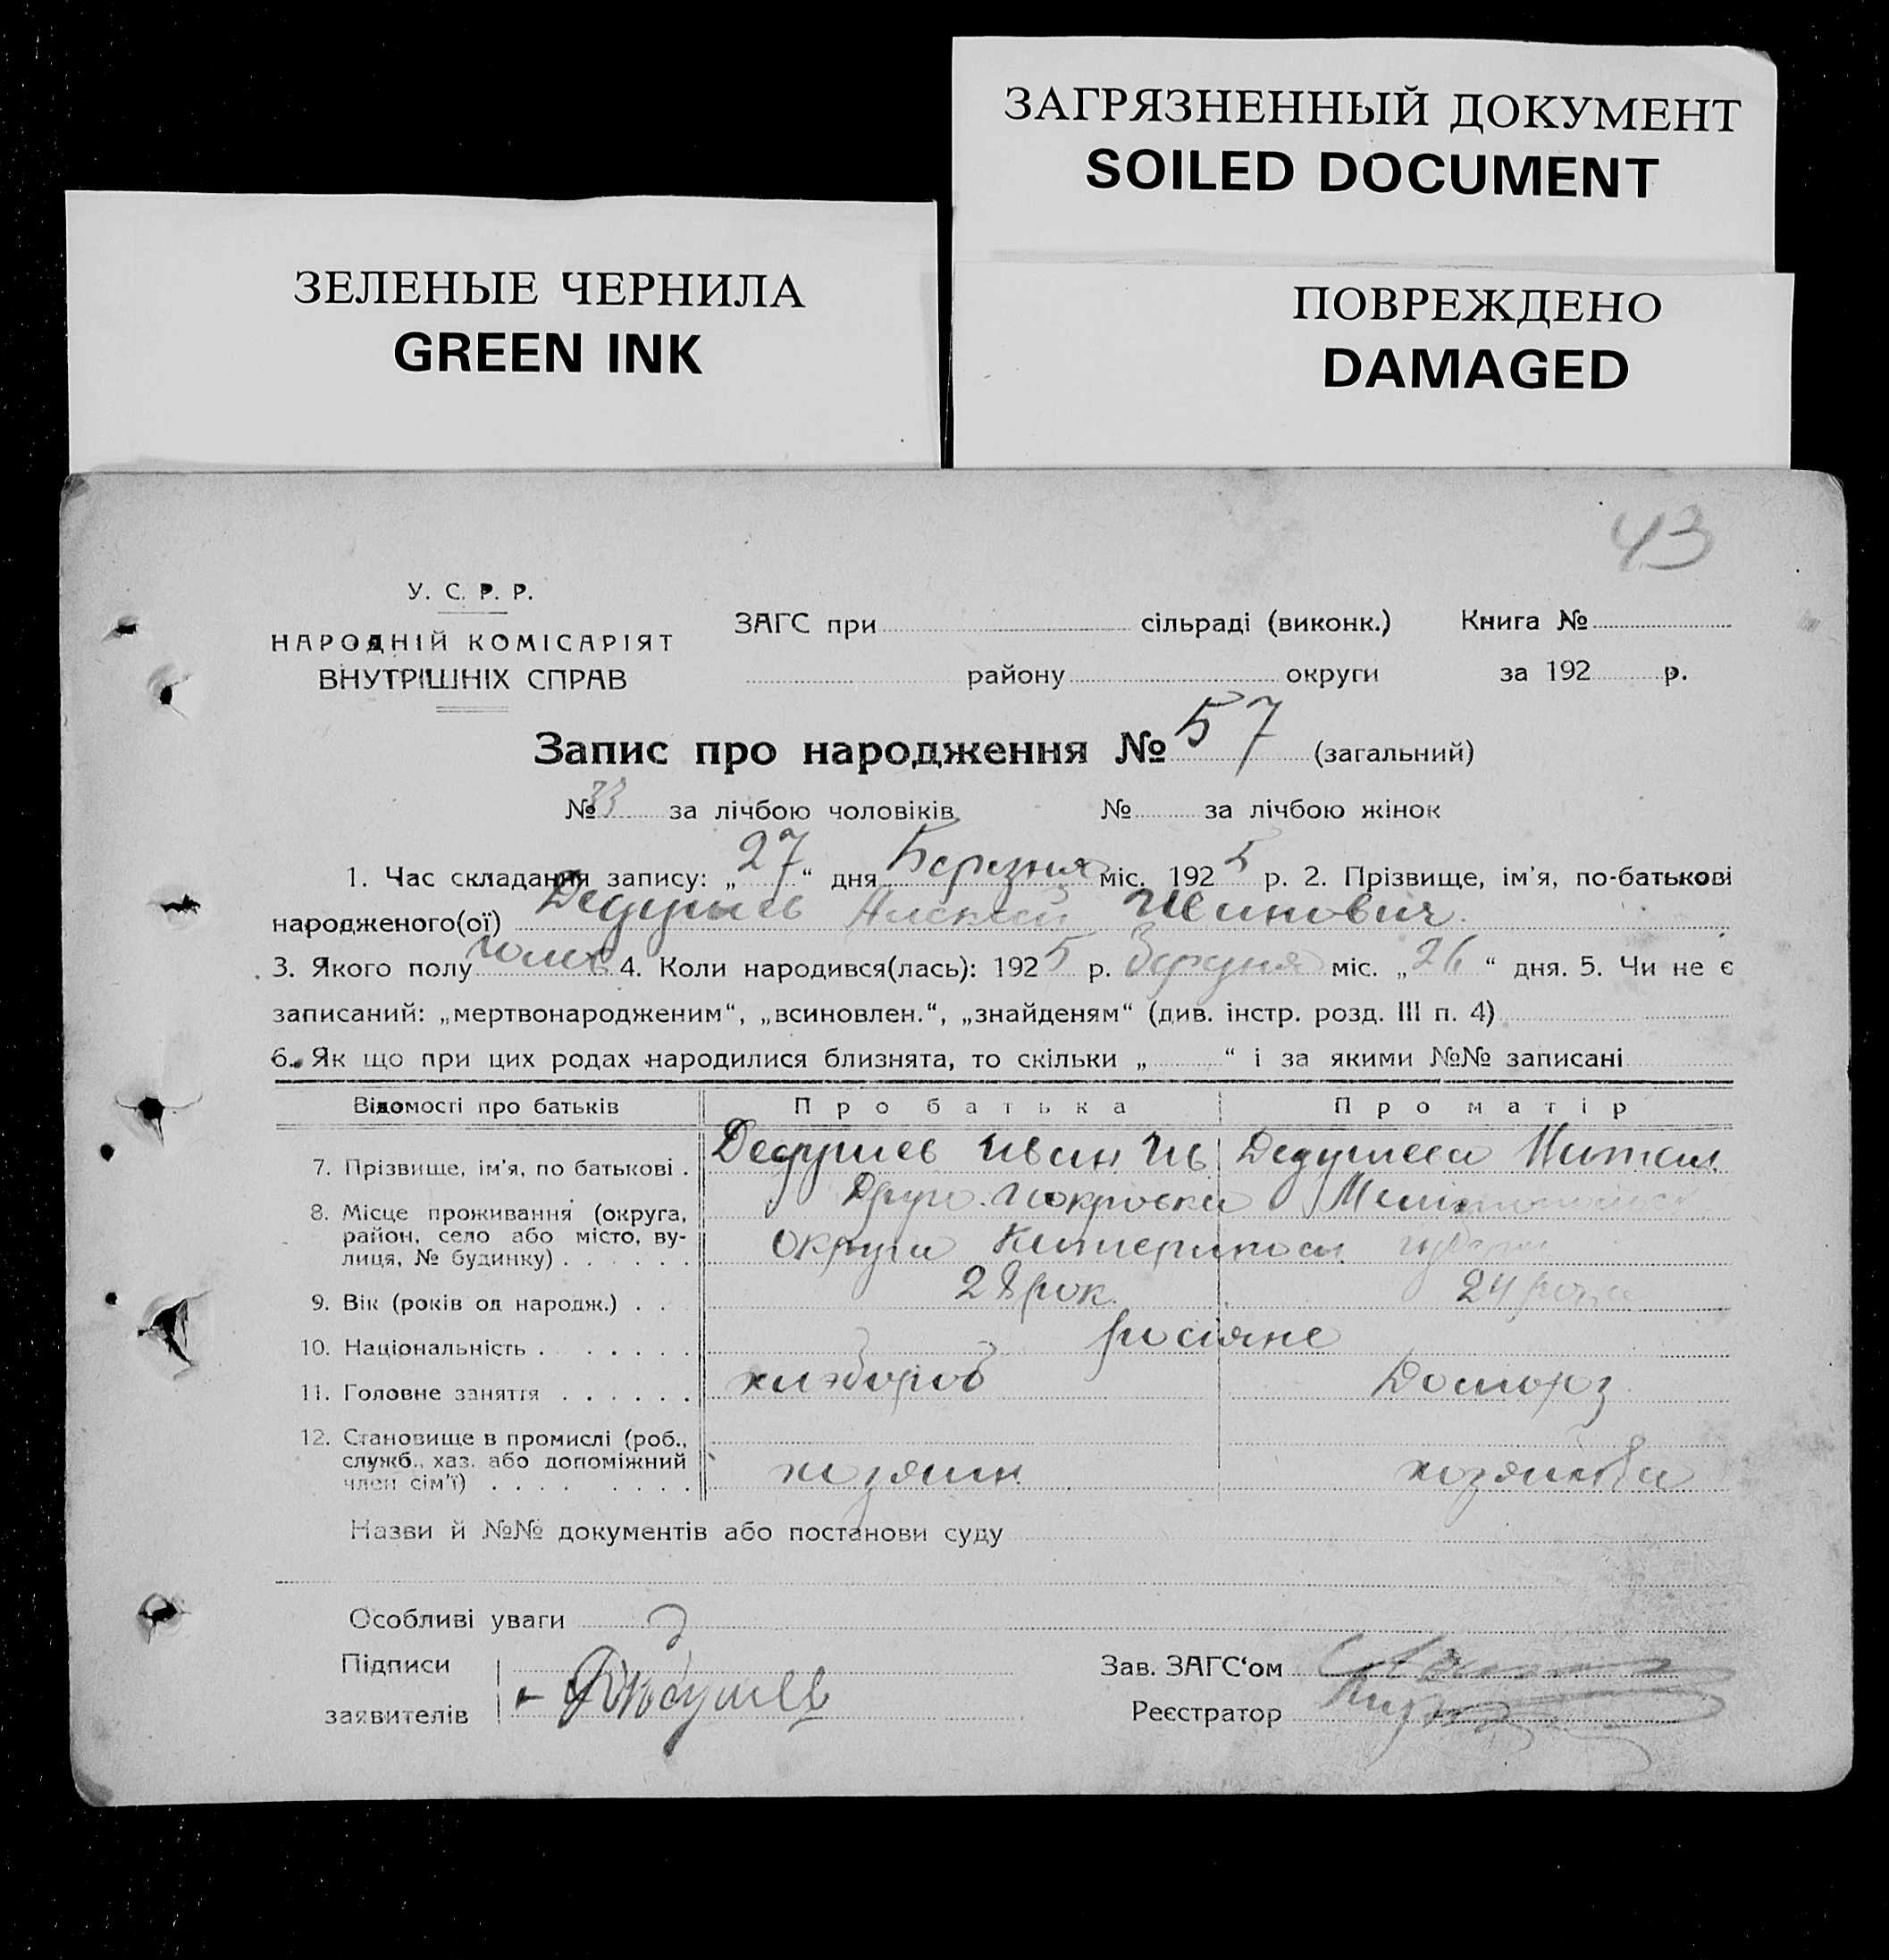 ЗАГРЯЗНЕННЫЙ ДОКУМЕНТ
SOILED DOCUMENT
ЗЕЛЕНЫЕ ЧЕРНИЛА
GREEN INK
ПОВРЕЖДЕНО
DAMAGED
43
У. С. Р. Р.
НАРОДНІЙ КОМІСАРІЯТ
ВНУТРІШНІХ СПРАВ
ЗАГС при сільраді (виконк.) Книга №
району округи за 192 р.
Запис про народження № 57 (загальний)
№ 33 за лічбою чоловіків № за лічбою жінок
1. Час складання запису: „27“ дня Березня міс. 1925 р. 2. Прізвище, ім'я, по-батькові
народженого(ої) Дедушев Алексей Иванович
3. Якого полу чолов 4. Коли народився(лась): 1925 р. Березня міс. „26“ дня. 5. Чи не є
записаний: „мертвонародженим“, „всиновлен.“, „знайденям“ (див. інстр. розд. III п. 4)
6. Як що при цих родах народилися близнята, то скільки „ “ і за якими №№ записані
Відомості про батьків Про батька Про матір
7. Прізвище, ім'я, по батькові . Дедушев Иван Ив Дедушева
8. Місце проживання (округа, район, село або місто, вулиця, № будинку) . . . . . Друго. Покровка
округи Катериносл. губерн
9. Вік (років од народж.) . . 28 рок. 24 роки
10. Національність . . . . . . росіяне
11. Головне заняття . . . . . . хлібороб Домогоз
12. Становище в промислі (роб., служб., хаз. або допоміжний член сім'ї) . . . . . . . . хозяин хозяйка
Назви й №№ документів або постанови суду
Особливі уваги
Підписи
заявителів Дѣдушев
Зав. ЗАГС'ом
Реєстратор